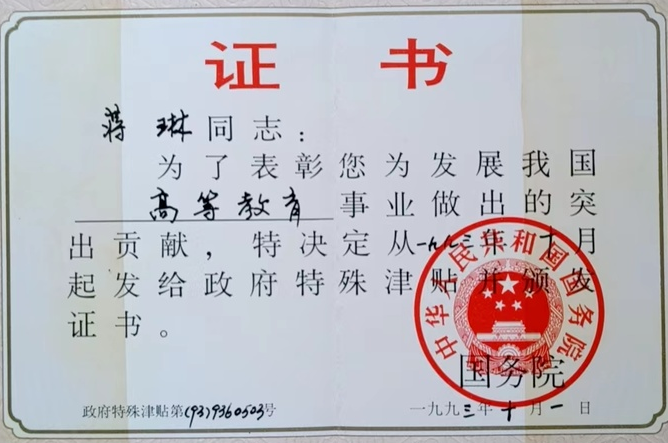 证书
蒋琳同志：
为了表彰您为发展我国
高等教育事业做出的突
出贡献，特决定从一九九三年十月
起发给政府特殊津贴并颁发
证书。
中华人民共和国国务院
国务院
政府特殊津贴第(93)9360503号
一九九三年十月一日